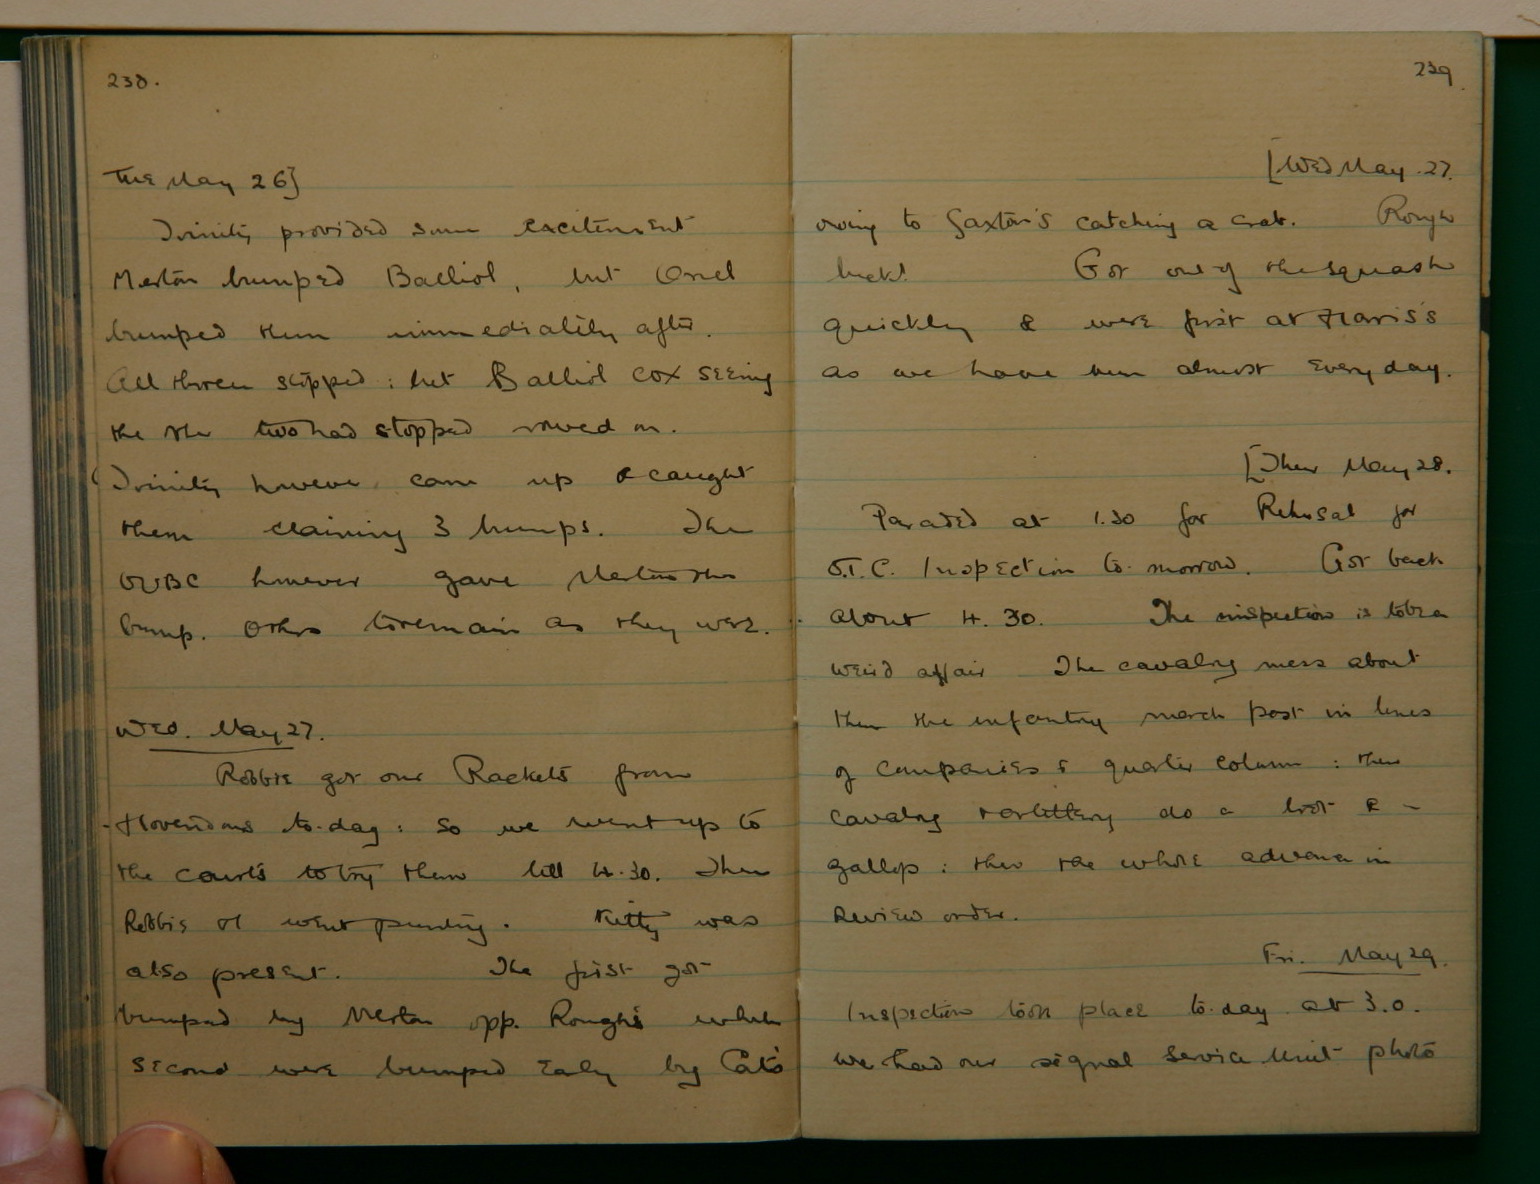 238.
Tue May 26]
Trinity provided some excitement
Merton bumped Balliol, but Oriel
bumped them immediatily after.
All three stopped : but Balliol cox seeing
the other two had stopped rowed on.
Trinity however came up & caught
them claiming 3 bumps. The
OUBC however gave Merton the
bump. Others to remain as they were.
Wed. May 27.
Robbie got our Rackets from
to-day : so we went up to
the courts to try them till 4.30. Then
Robbie & I went punting. Kitty was
also present. The first got
bumped by Merton opp. Rough's while
second were bumped early by Cat's
239.
[Wed May 27.
owing to Saxton's catching a crab. Rough
luck! Got out of the squash
quickly & were first at Harris's
as we have been almost every day.
[Thur May 28.
Paraded at 1.30 for Rehersal for
O.T.C. Inspection to-morrow. Got back
about 4.30. The inspection is to be a
weird affair The cavalry mess about
then the infantry march past in lines
of companies & quarter column : then
cavalry & artillery do a trot & -
gallop : then the whole advance in
Review order.
Fri. May 29.
Inspection took place to-day at 3.0.
We had our signal service unit photo